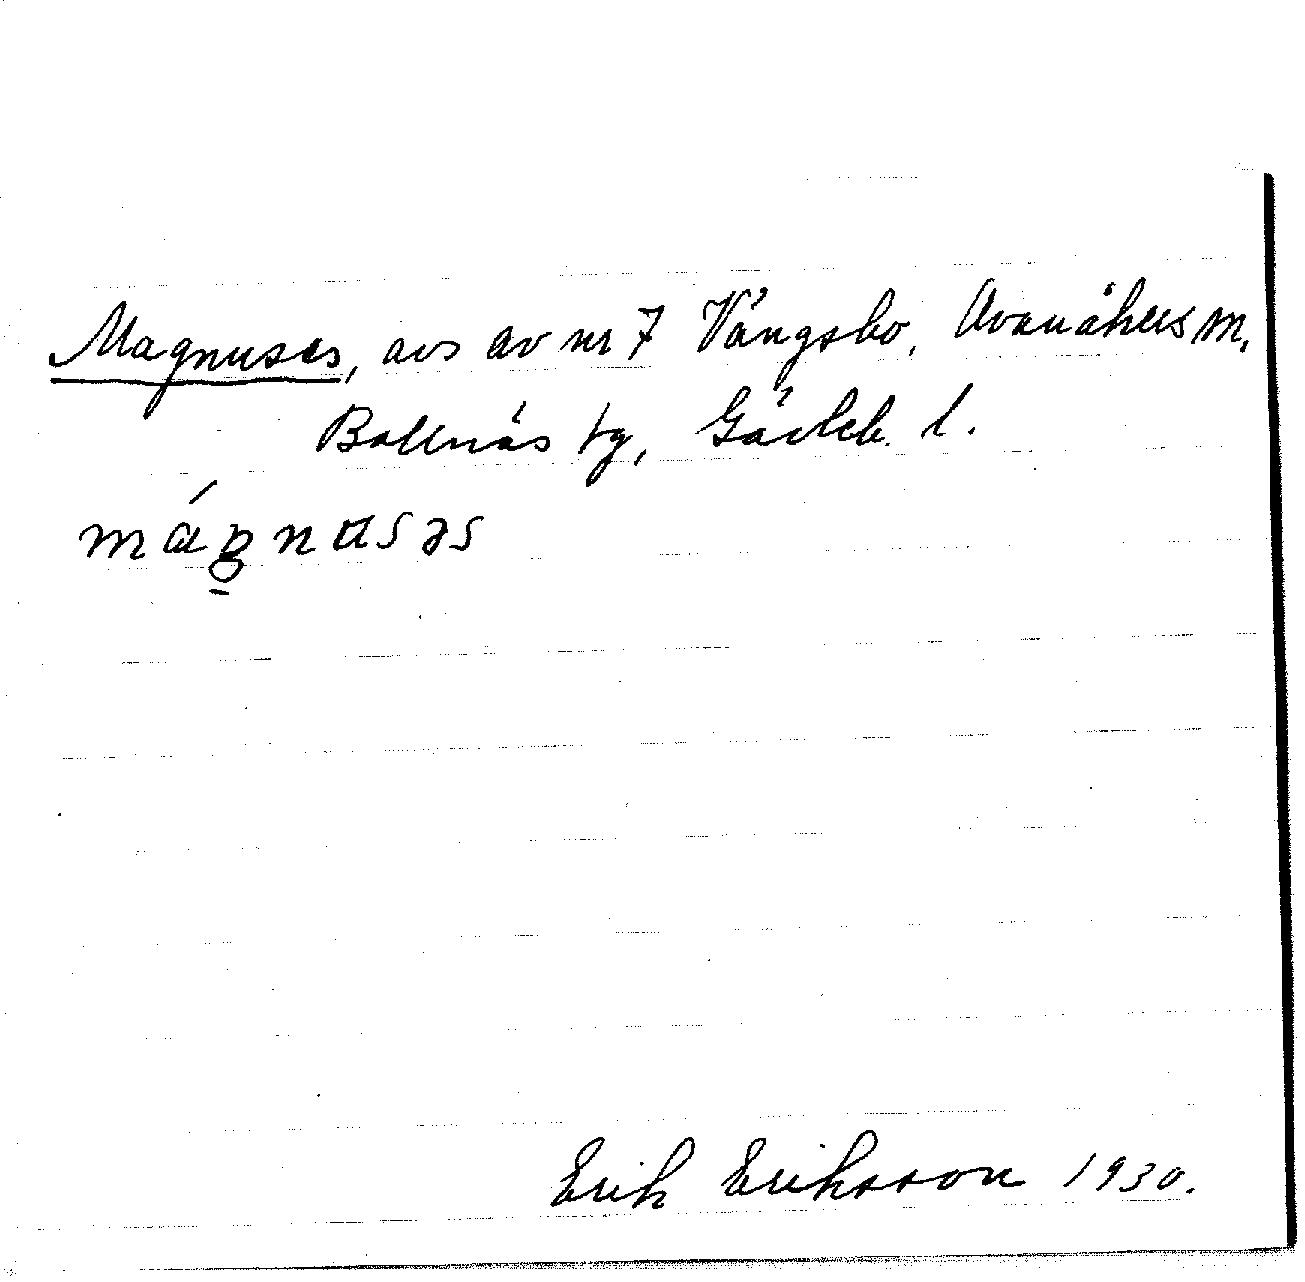 Magnuses, avs av nr 7 Vångsbo, Arenåhus m.
Bollnäs tg, Gävleb. l.
Erik Eriksson 1930.